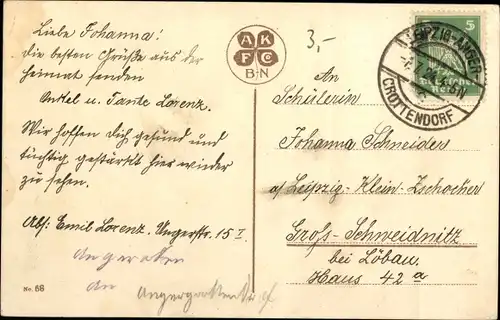 Liebe Johanna!
die besten Grüße aus der
Heimat senden
Onkel u. Tante Lorenz.
Wir hoffen dich gesund und
tüchtig gestärkt hier wieder
zu sehen.
Abs: Emil Lorenz. Ungerstr. 15 I.
An
No. 68
A K
F C
B-N
3,-
5
LEIPZIG-ANGER
CROTTENDORF
An
Schülerin
Johanna Schneider
a/ Leipzig-Klein-Zschocher
Groß-Schweidnitz
bei Löbau.
Haus 42 a